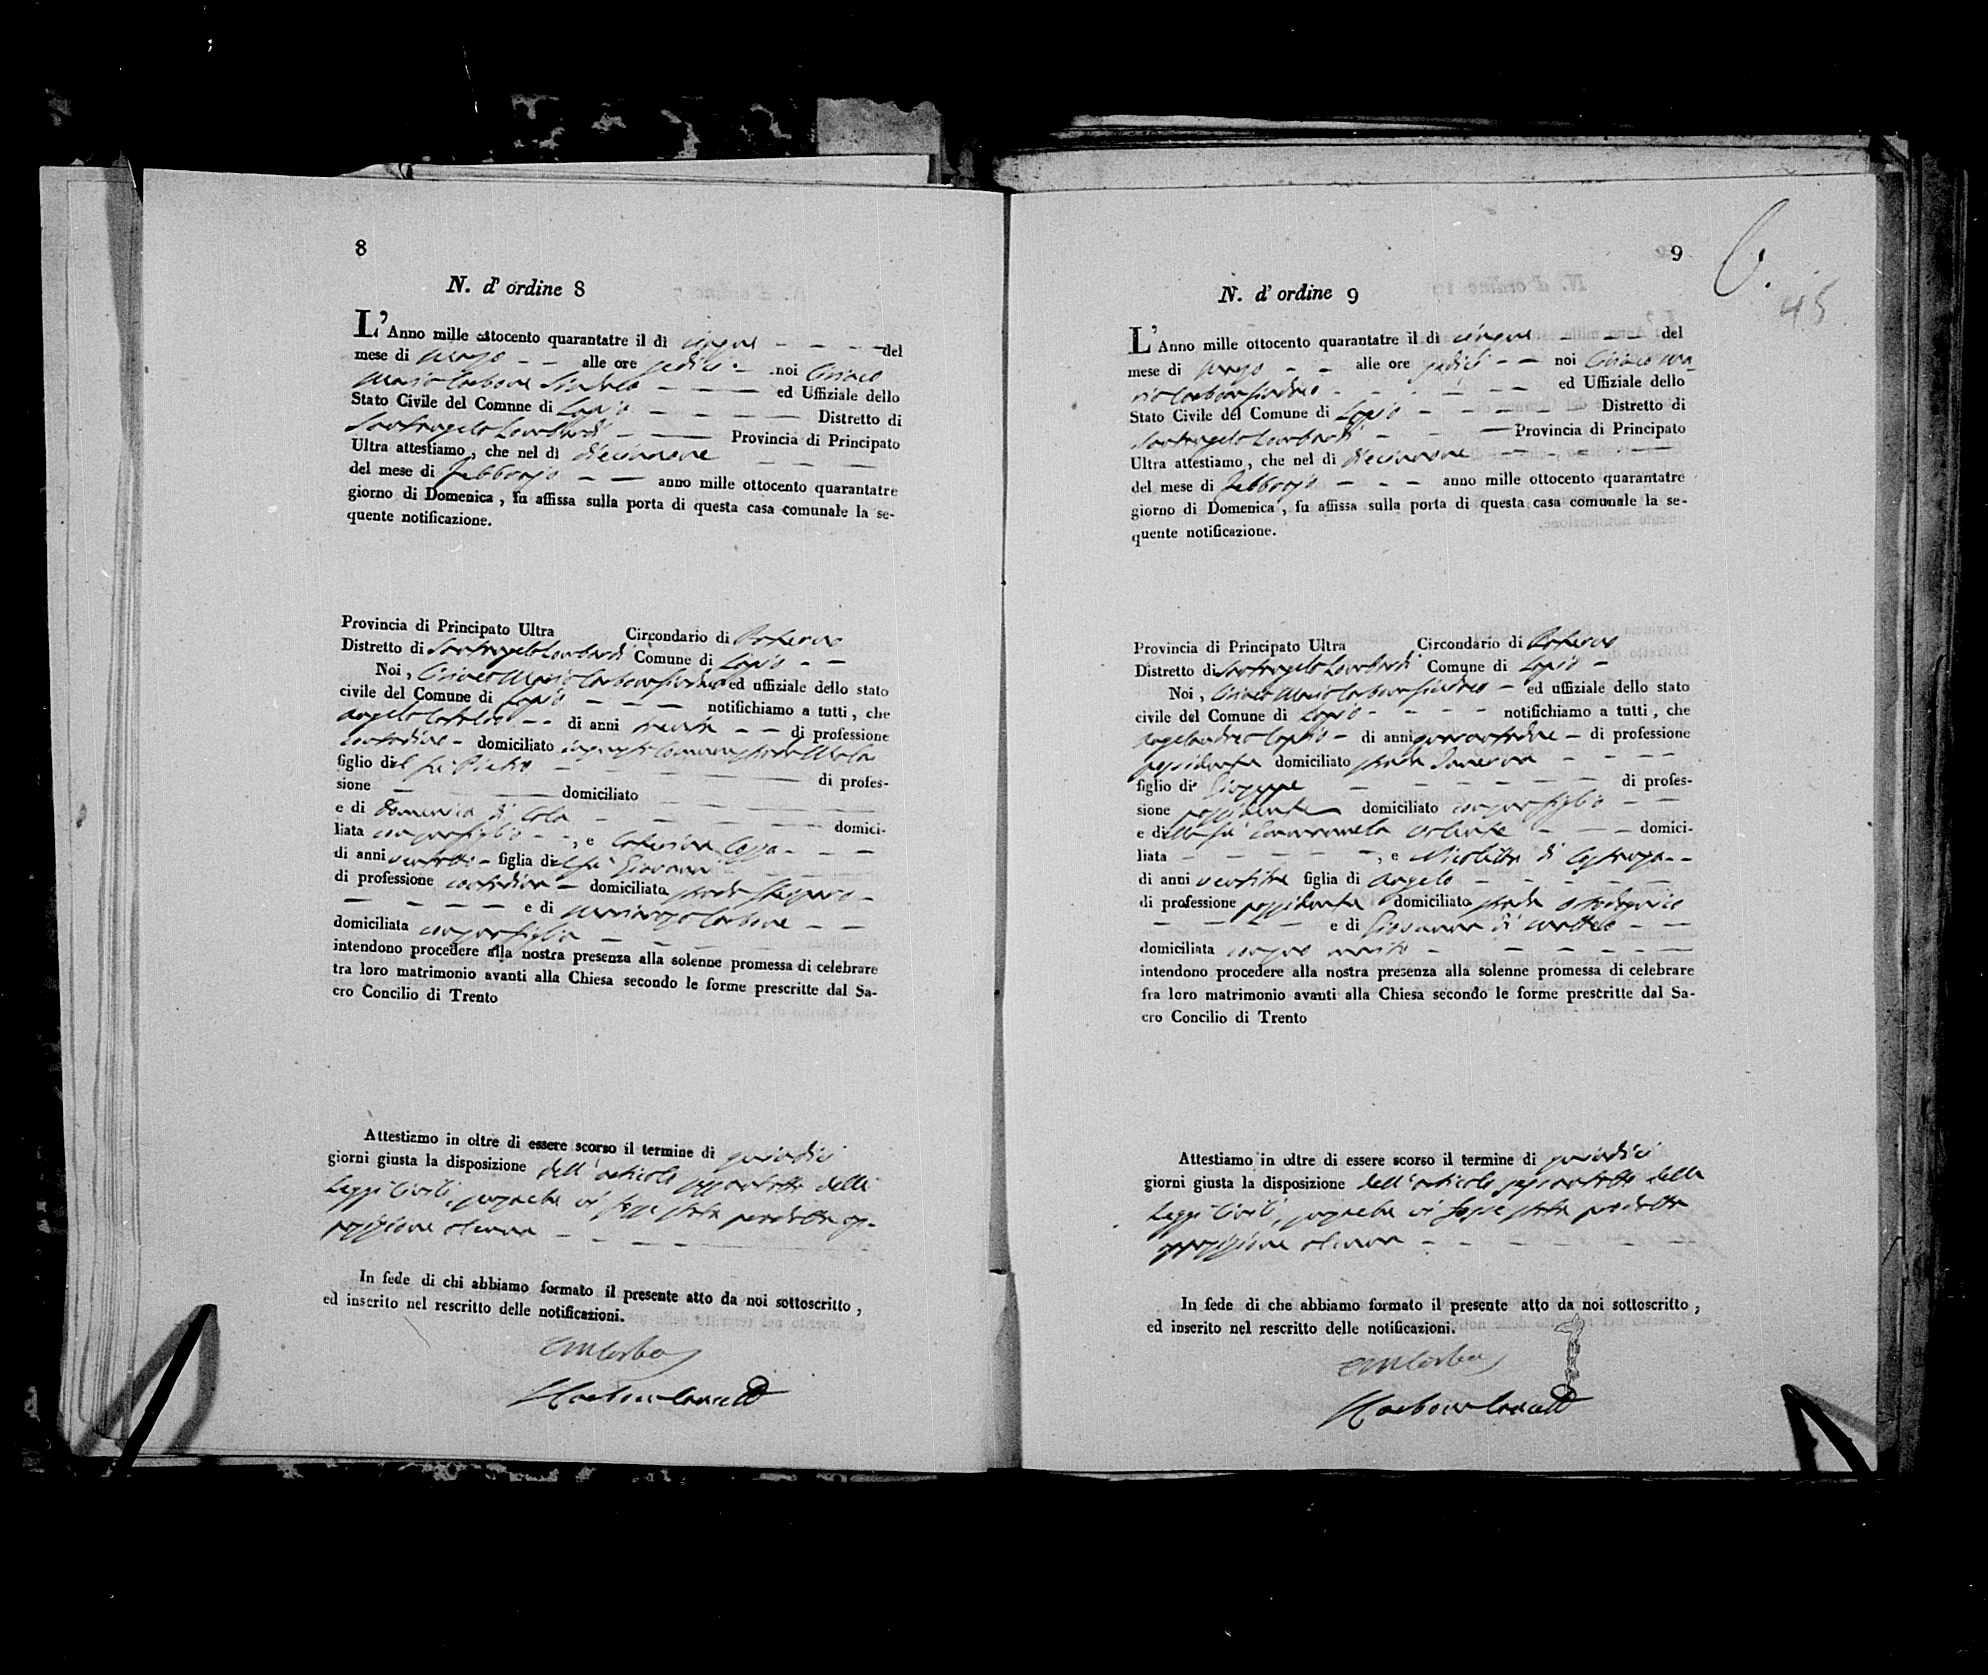 8
N. d' ordine 8
L'Anno mille ottocento quarantatre il dì cinque del
mese di Marzo alle ore sedici noi Ciriaco
Maria Carbone Sindaco ed Uffiziale dello
Stato Civile del Comnne di Lapio Distretto di
Santangelo Lombardi Provincia di Principato
Ultra attestiamo, che nel dì diecinnove
del mese di Febbrajo anno mille ottocento quarantatre
giorno di Domenica, fu affissa sulla porta di questa casa comunale la se-
quente notificazione.
Provincia di Principato Ultra Circondario di
Distretto di Santangelo Lombardi Comune di Lapio
Noi, Ciriaco Maria Carbone Sindaco ed uffiziale dello stato
civile del Comune di Lapio notifichiamo a tutti, che
Angelo di anni trenta di professione
contadino domiciliato in questo Comune strada
figlio del fu Pietro di profes-
sione domiciliato
e di Domenica di Cola domici-
liata come suo figlio, e Caterina
di anni figlia del fu Giovanni
di professione contadina domiciliata strada
e di Mariarosa Carbone
domiciliata come sua figlia
intendono procedere alla nostra presenza alla solenne promessa di celebrare
tra loro matrimonio avanti alla Chiesa secondo le forme prescritte dal Sa-
cro Concilio di Trento
Attestiamo in oltre di essere scorso il termine di quindici
giorni giusta la disposizione dell'articolo settantotto delle
Leggi Civili, senzache vi fosse stata prodotta op-
posizione alcuna
In fede di chi abbiamo formato il presente atto da noi sottoscritto,
ed inserito nel rescritto delle notificazioni.
9
45
N. d' ordine 9
L'Anno mille ottocento quarantatre il dì cinque del
mese di Marzo alle ore sedici noi Ciriaco Ma-
ria Carbone Sindaco ed Uffiziale dello
Stato Civile del Comune di Lapio Distretto di
Santangelo Lombardi Provincia di Principato
Ultra attestiamo, che nel dì diecinnove
del mese di Febbrajo anno mille ottocento quarantatre
giorno di Domenica, fu affissa sulla porta di questa casa comunale la se-
quente notificazione.
Provincia di Principato Ultra Circondario di
Distretto di Santangelo Lombardi Comune di Lapio
Noi, Ciriaco Maria Carbone Sindaco ed uffiziale dello stato
civile del Comune di Lapio notifichiamo a tutti, che
di anni di professione
possidente domiciliato strada
figlio di Giuseppe di profes-
sione possidente domiciliato come suo figlio
e di domici-
liata, e Nicoletta di
di anni figlia di Angelo
di professione possidente domiciliata strada
e di Giovanna di
domiciliata come suo marito
intendono procedere alla nostra presenza alla solenne promessa di celebrare
fra loro matrimonio avanti alla Chiesa secondo le forme prescritte dal Sa-
cro Concilio di Trento
Attestiamo in oltre di essere scorso il termine di quindici
giorni giusta la disposizione dell'articolo settantotto delle
Leggi Civili, senzache vi fosse stata prodotta
opposizione alcuna
In fede di che abbiamo formato il presente atto da noi sottoscritto,
ed inserito nel rescritto delle notificazioni.